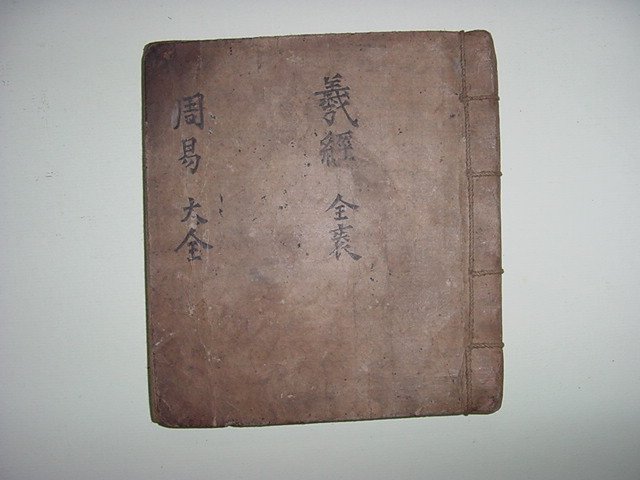 羲經 全袠
周易 大全